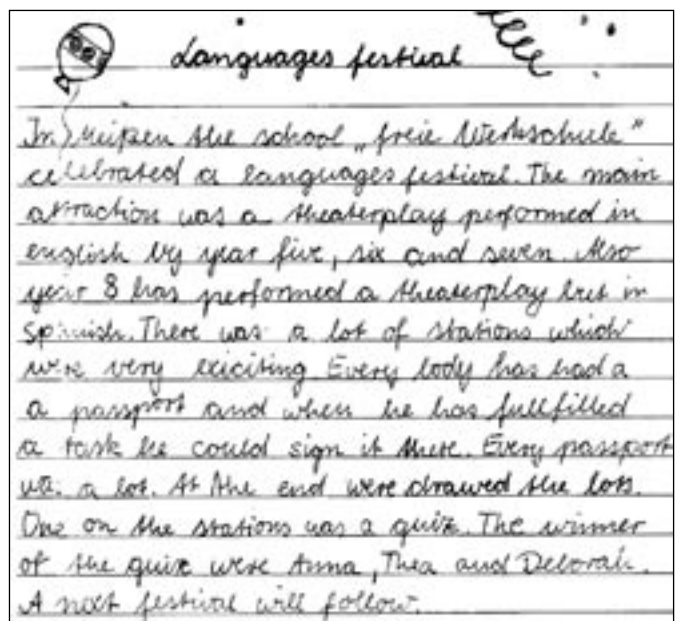 Languages festival
In Meißen the school „freie Werkschule"
celebrated a languages festival. The main
attraction was a theaterplay performed in
english by year five, six and seven. Also
year 8 has performed a theaterplay but in
Spanish. There was a lot of stations which
were very exiciting. Every body has had a
a passport and when he has fullfilled
a task he could sign it there. Every passport
was a lot. At the end were drawed the lots.
One on the stations was a quiz. The winner
of the quiz were Anna, Thea and Deborah.
A next festival will follow.